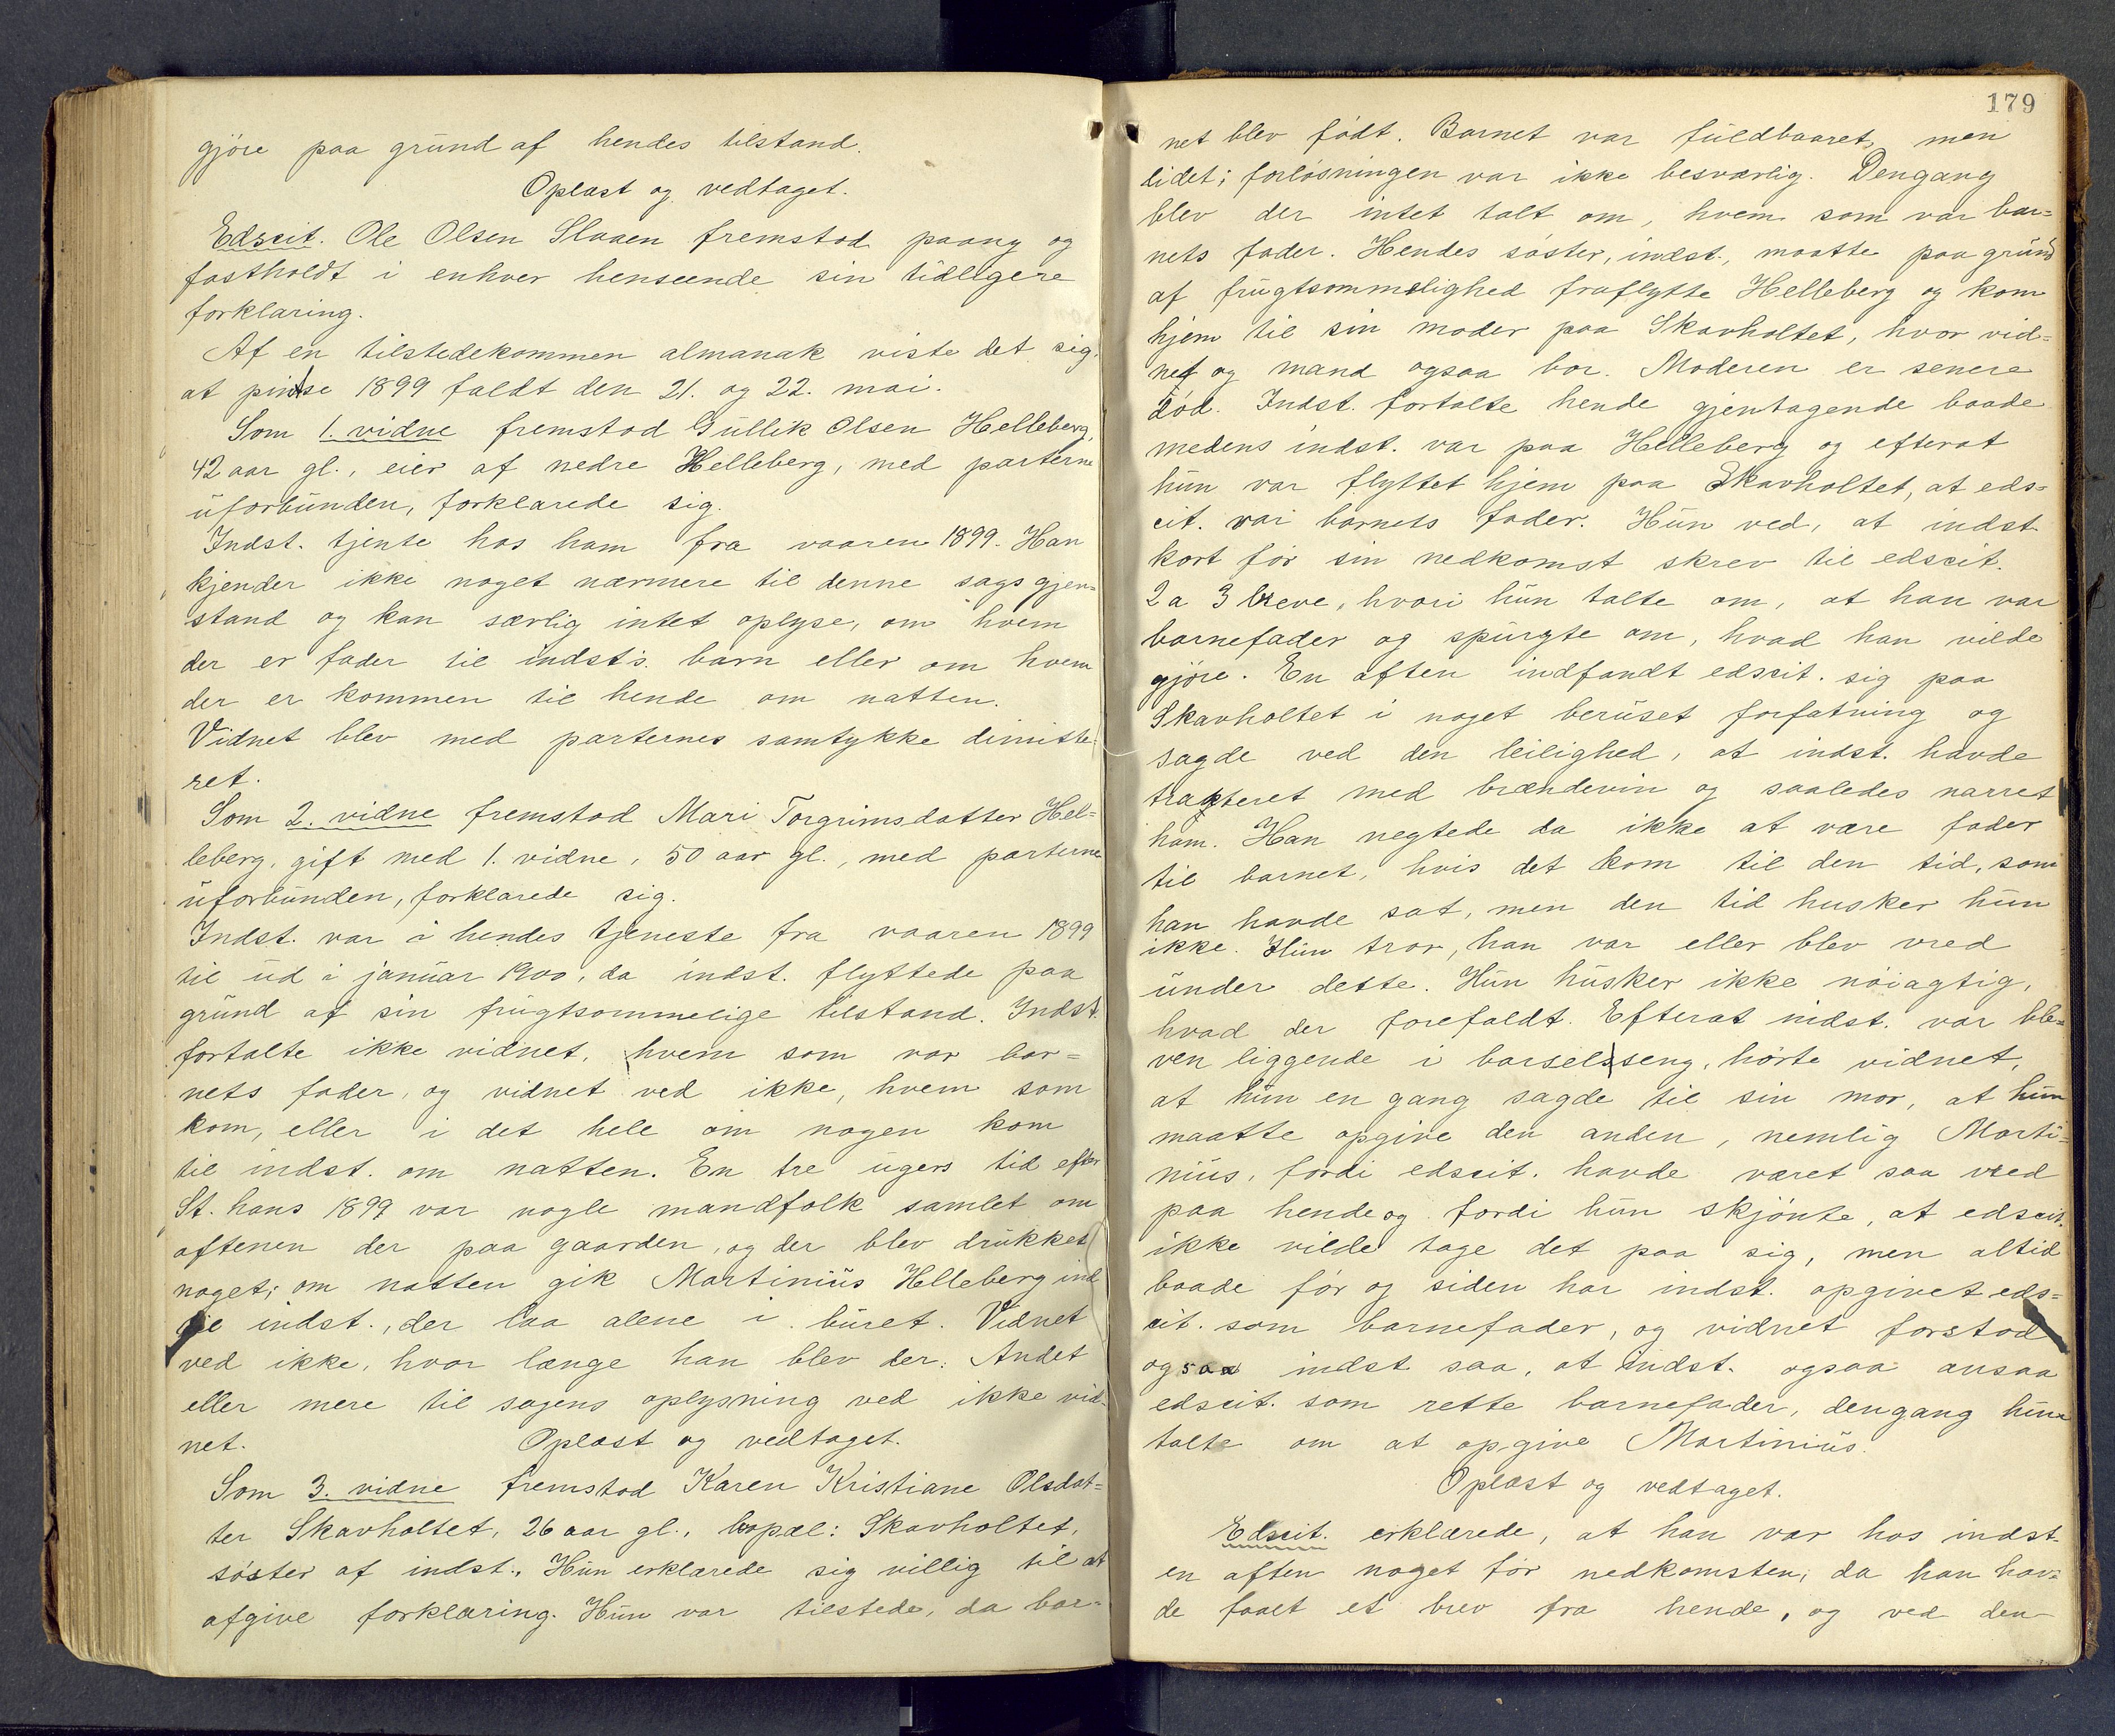 gjöre paa grund af hendes tilstand.
Oplæst og vedtaget.
Edscit. Ole Olsen Slaaen fremstod paany og
fastholdt i enhver henseende sin tidligere
forklaring.
Af en tilstedekommen almanak viste det sig,
at pinse 1899 faldt den 21. og 22. mai.
Som 1. vidne fremstod Gullik Olsen Helleberg,
42 aar gl., eier af nedre Helleberg, med parterne
uforbunden, forklarede sig.
Indst. tjente hos ham fra vaaren 1899. Han
kjender ikke noget nærmere til denne sags gjen=
stand og kan særlig intet oplyse, om hvem
der er fader til indst's. barn eller om hvem
der er kommen til hende om natten.
Vidnet blev med parternes samtykke dimitte-
ret.
Som 2. vidne fremstod Mari Torgrimsdatter Hel=
leberg, gift med 1. vidne, 50 aar gl., med parterne
uforbunden, forklarede sig.
Indst. var i hendes tjeneste fra vaaren 1899
til ud i januar 1900, da indst. flyttede paa
grund af sin frugtsommelige tilstand. Indst.
fortalte ikke vidnet, hvem som var bar=
nets fader, og vidnet ved ikke, hvem som
kom, eller i det hele om nogen kom
til indst. om natten. En tre ugers tid efter
St. hans 1899 var nogle mandfolk samlet om
aftenen der paa gaarden, og der blev drukket
noget; om natten gik Martinius Helleberg ind
til indst., der laa alene i buret. Vidnet
ved ikke, hvor længe han blev der. Andet
eller mere til sagens oplysning ved ikke vid-
net. Oplæst og vedtaget.
Som 3. vidne fremstod Karen Kristiane Olsdat=
ter Skavholtet, 26 aar gl., bopæl: Skavholtet,
söster af indst.. Hun erklærede sig villig til at
afgive forklaring. Hun var tilstede, da bar-
179
net blev födt. Barnet var fuldbaaret, men
lidet; forlösningen var ikke besværlig. Dengang
blev der intet talt om, hvem som var bar=
nets fader. Hendes söster, indst., maatte paa grund
af frugtsommelighed fraflytte Helleberg og kom
hjem til sin moder paa Skavholtet, hvor vid=
net og mand ogsaa bor. Moderen er senere
död. Indst. fortalte hende gjentagende baade
medens indst. var paa Helleberg og efterat
hun var flyttet hjem paa Skavholtet, at eds=
cit. var barnets fader. Hun ved, at indst.
kort för sin nedkomst skrev til edscit.
2 a 3 breve, hvori hun talte om, at han var
barnefader og spurgte om, hvad han vilde
gjöre. En aften indfandt edscit. sig paa
Skavholtet i noget beruset forfatning og
sagde ved den leilighed, at indst. havde
trakteret med brændevin og saaledes narret
ham. Han negtede da ikke at være fader
til barnet, hvis det kom til den tid, som
han havde sat, men den tid husker hun
ikke. Hun tror, han var eller blev vred
under dette. Hun husker ikke nöiagtig,
hvad der forefaldt. Efterat indst. var ble=
ven liggende i barselsseng, hörte vidnet,
at hun en gang sagde til sin mor, at hun
maatte opgive den anden, nemlig Marti=
nius, fordi edscit. havde været saa vred
paa hende og fordi hun skjönte, at edscit.
ikke vilde tage det paa sig, men altid
baade för og siden har indst. opgivet eds=
cit. som barnefader, og vidnet forstod
ogsaa indst saa, at indst. ogsaa ansaa
edscit. som rette barnefader, dengang hun
talte om at opgive Martinius.
Oplæst og vedtaget.
Edscit. erklærede, at han var hos indst.
en aften noget för nedkomsten, da han hav=
de faaet et brev fra hende, og ved den